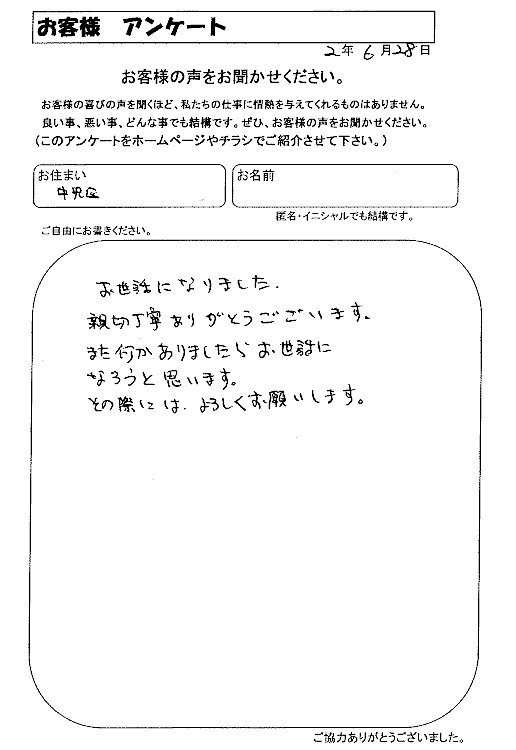 お客様 アンケート
2年 6月28日
お客様の声をお聞かせください。
お客様の喜びの声を聞くほど、私たちの仕事に情熱を与えてくれるものはありません。
良い事、悪い事、どんな事でも結構です。ぜひ、お客様の声をお聞かせください。
(このアンケートをホームページやチラシでご紹介させて下さい。)
お住まい
中央区
お名前
匿名・イニシャルでも結構です。
ご自由にお書きください。
お世話になりました.
親切丁寧ありがとうございます。
また何かありましたらお世話に
なろうと思います。
その際には、よろしくお願いします。
ご協力ありがとうございました。